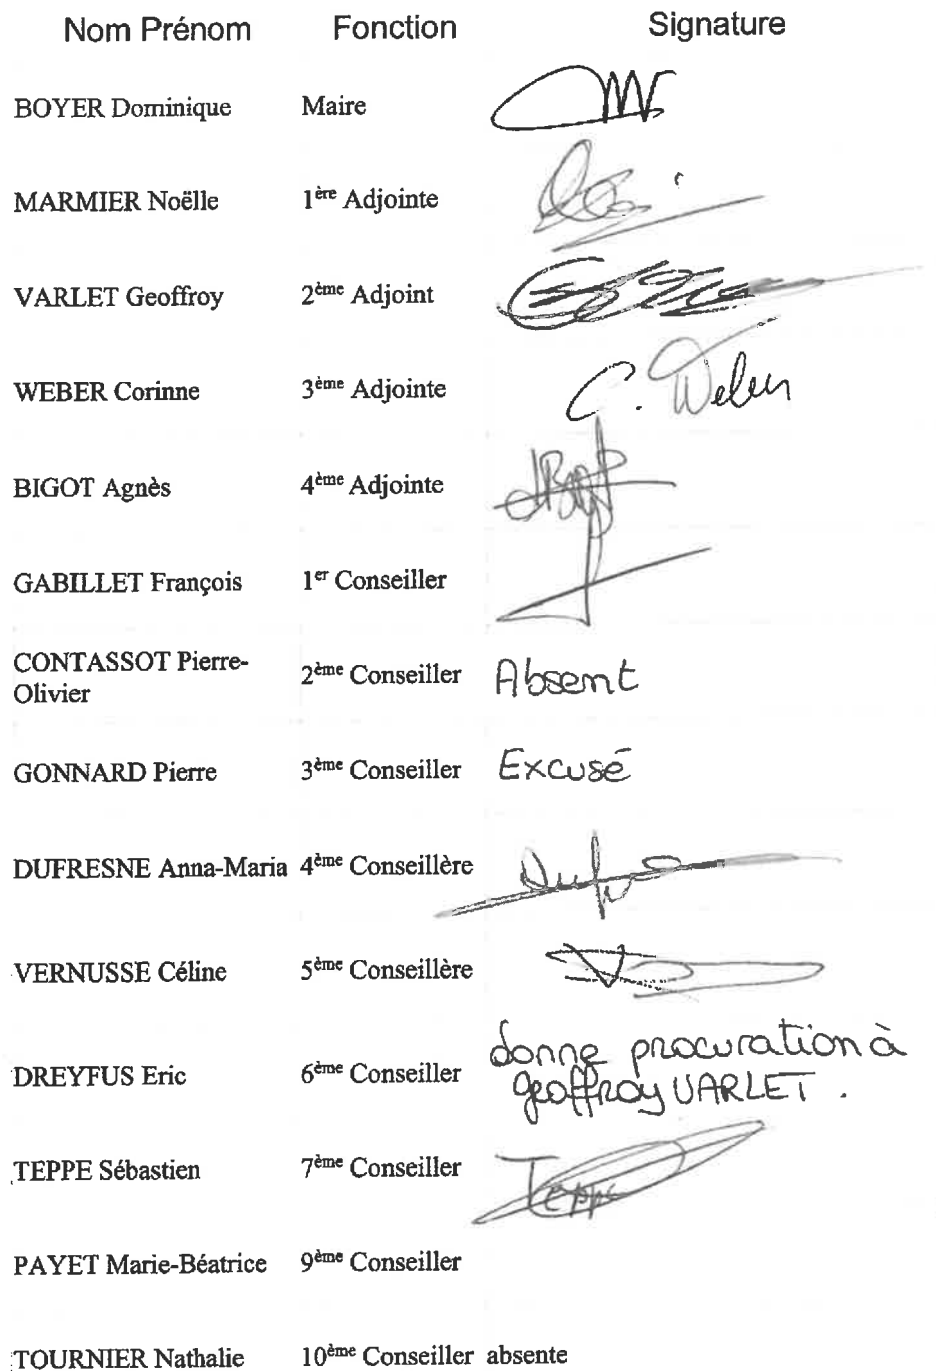 Nom Prénom Fonction Signature
BOYER Dominique Maire
MARMIER Noëlle 1ère Adjointe
VARLET Geoffroy 2ème Adjoint
WEBER Corinne 3ème Adjointe C. Weber
BIGOT Agnès 4ème Adjointe
GABILLET François 1er Conseiller
CONTASSOT Pierre-
Olivier 2ème Conseiller Absent
GONNARD Pierre 3ème Conseiller Excusé
DUFRESNE Anna-Maria 4ème Conseillère
VERNUSSE Céline 5ème Conseillère
DREYFUS Eric 6ème Conseiller donne procuration à
Geoffroy VARLET.
TEPPE Sébastien 7ème Conseiller Teppe
PAYET Marie-Béatrice 9ème Conseiller
TOURNIER Nathalie 10ème Conseiller absente